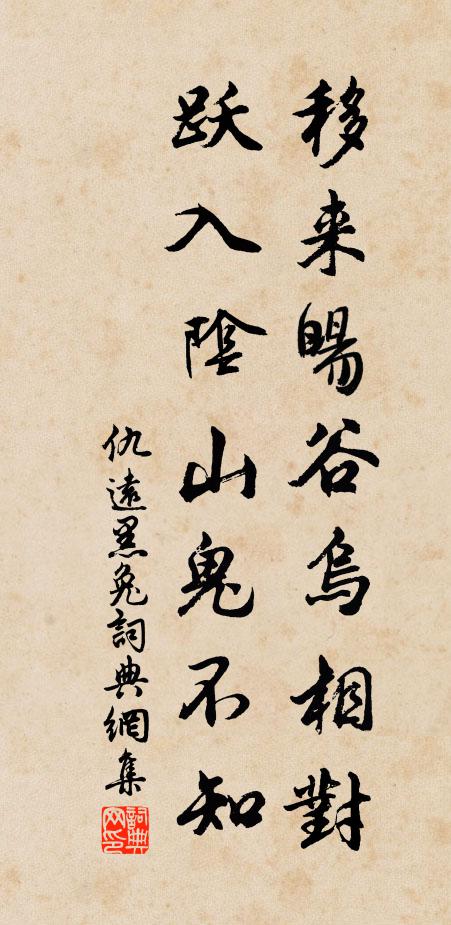 移来暘谷烏相對
跃入陰山鬼不知
仇遠黑兔詞典網集
詞典网印